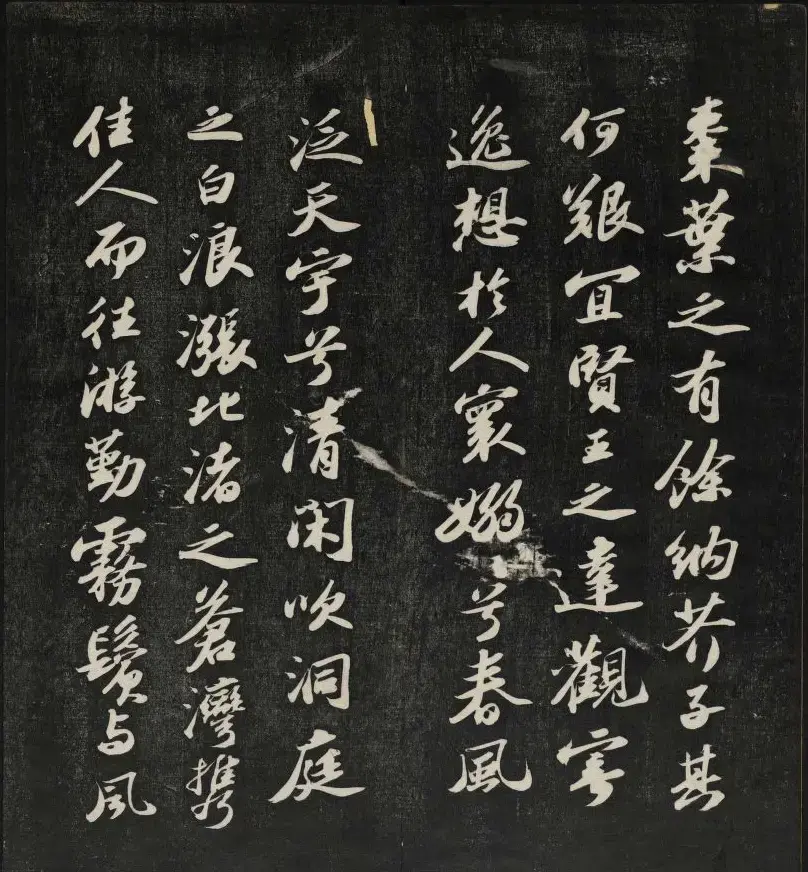 棗葉之有餘納芥子其
何艱宜賢王之達觀寄
逸想於人寰嫋兮春風
泛天宇兮清閑吹洞庭
之白浪漲北渚之蒼灣攜
佳人而往游勤霧鬢与風